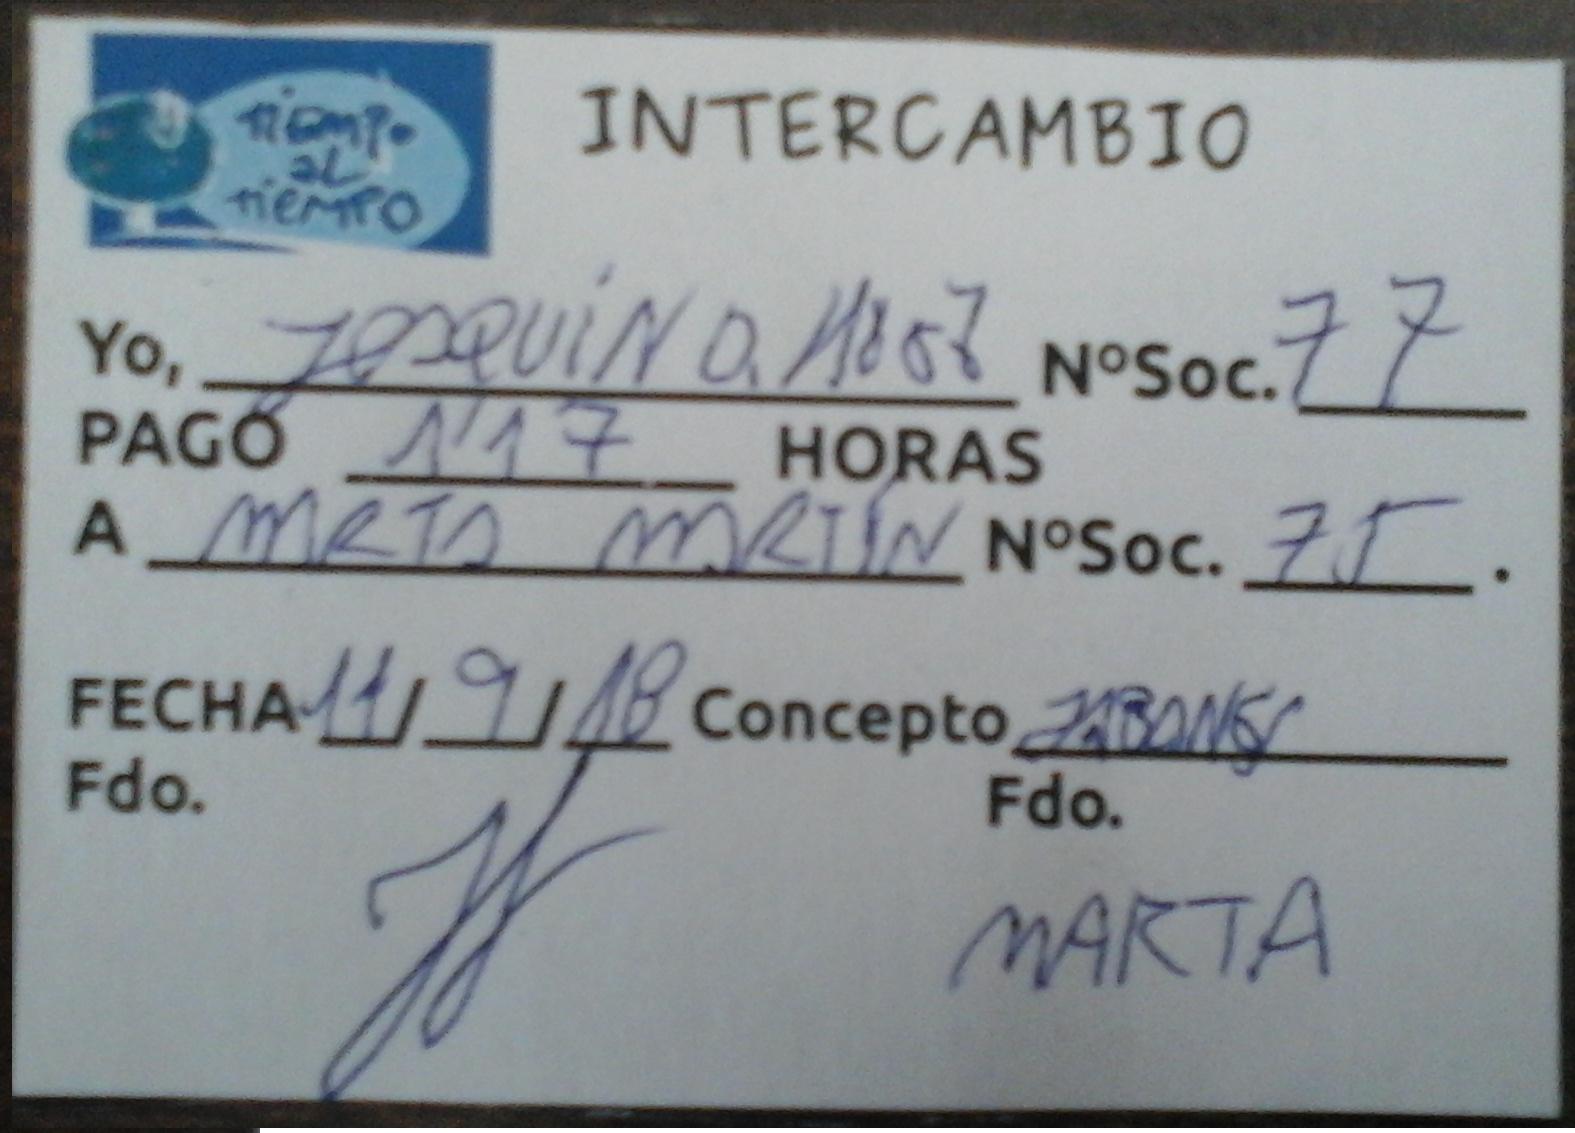 TIEMPO
AL
TIEMPO
INTERCAMBIO
Yo, JOAQUIN O. NºSoc. 77
PAGO 1'17 HORAS
A MARTA MARTÍN NºSoc. 75 .
FECHA 11/ 9/ 18 Concepto JABONES
Fdo. Fdo.
MARTA